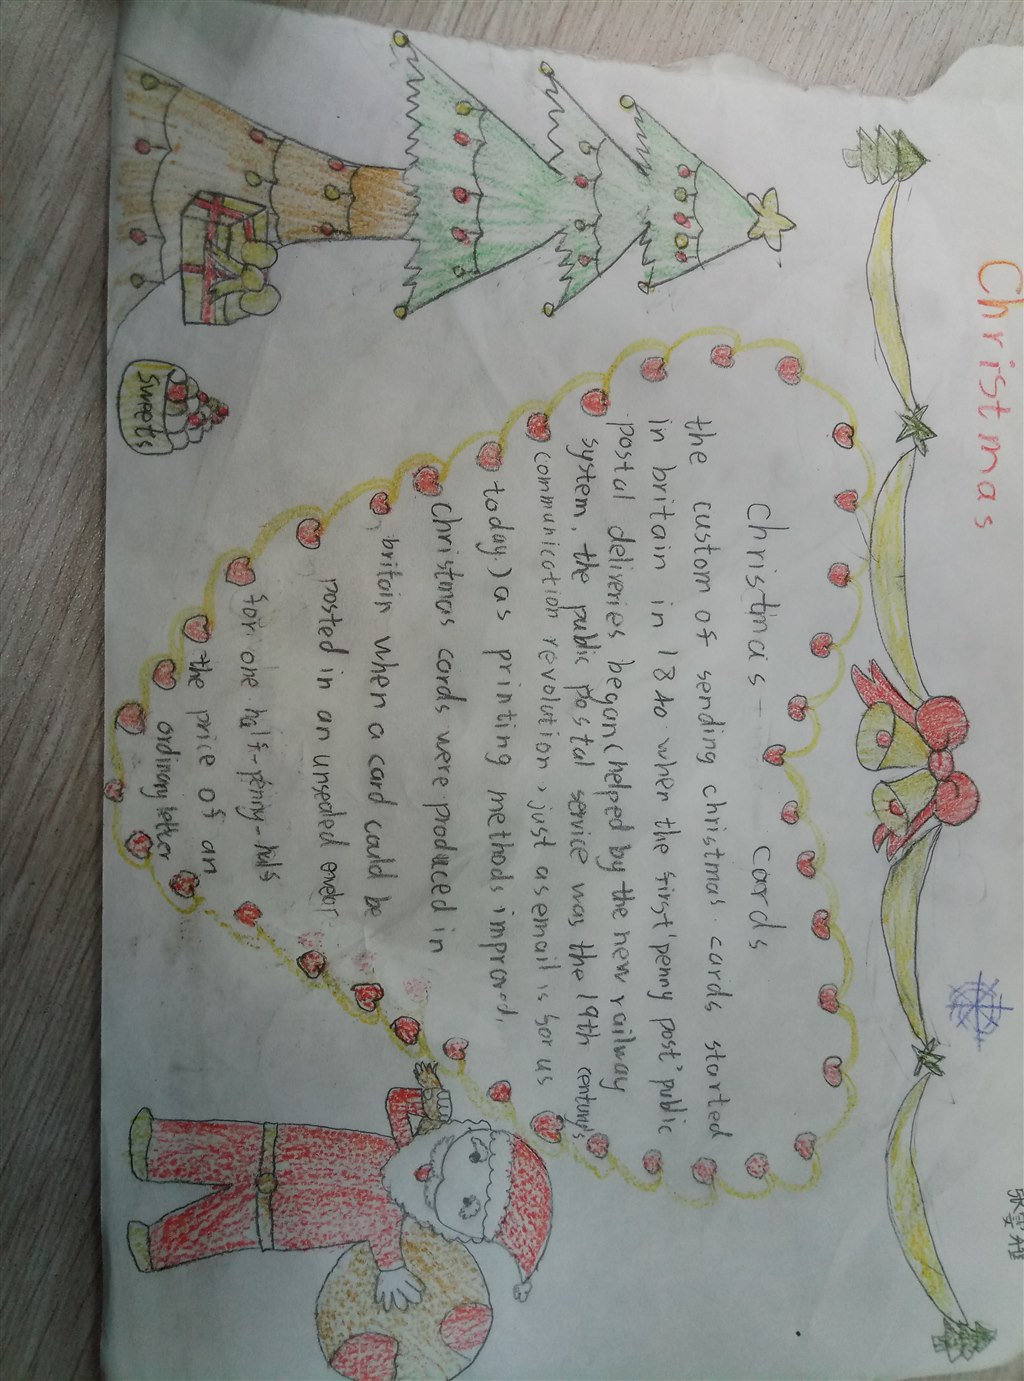 Christmas
christmas - cards
the custom of sending christmas cards started
in britain in 1840 when the first 'penny post' public
postal deliveries began (helped by the new railway
system, the public postal service was the 19th century's
communication revolution, just as email is for us
today.) as printing methods improved,
christmas cards were produced in
britain when a card could be
posted in an unsealed
for one half-penny-hals
the price of an
ordinary letter
sweets